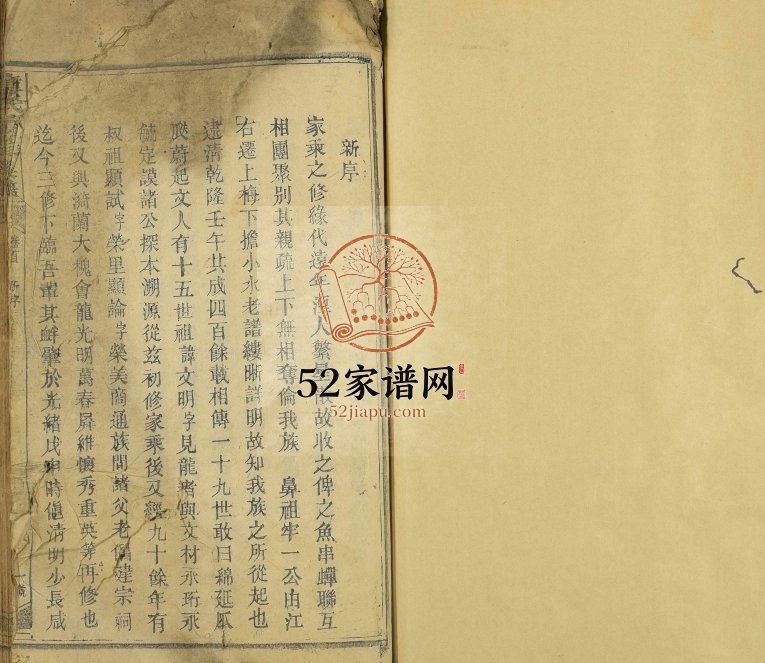 新序
家乘之修緣代遠年湮人繁星散故收之俾之魚串蟬聯互
相團聚別其親疏上下無相奪倫我族 鼻祖牢一公由江
右遷上梅下擔小水老譜縷晰詳明故知我族之所從起也
逮清乾隆壬午共成四百餘載相傳一十九世敢曰綿延瓜
瓞蔚起文人有十五世祖諱文明字見龍者與文材永珩永
毓定謨諸公探本溯源從茲初修家乘後又經九十餘年有
叔祖顯試字榮里顯論字榮美商通族間諸父老倡建宗祠
後又與漪蘭大槐會龍光明萬春昇維懷秀重英等再修也
迄今三修下臨吾輩其衅肇於光緒戊申時值清明少長咸
卷首 新序
52家谱网
52jiapu.com